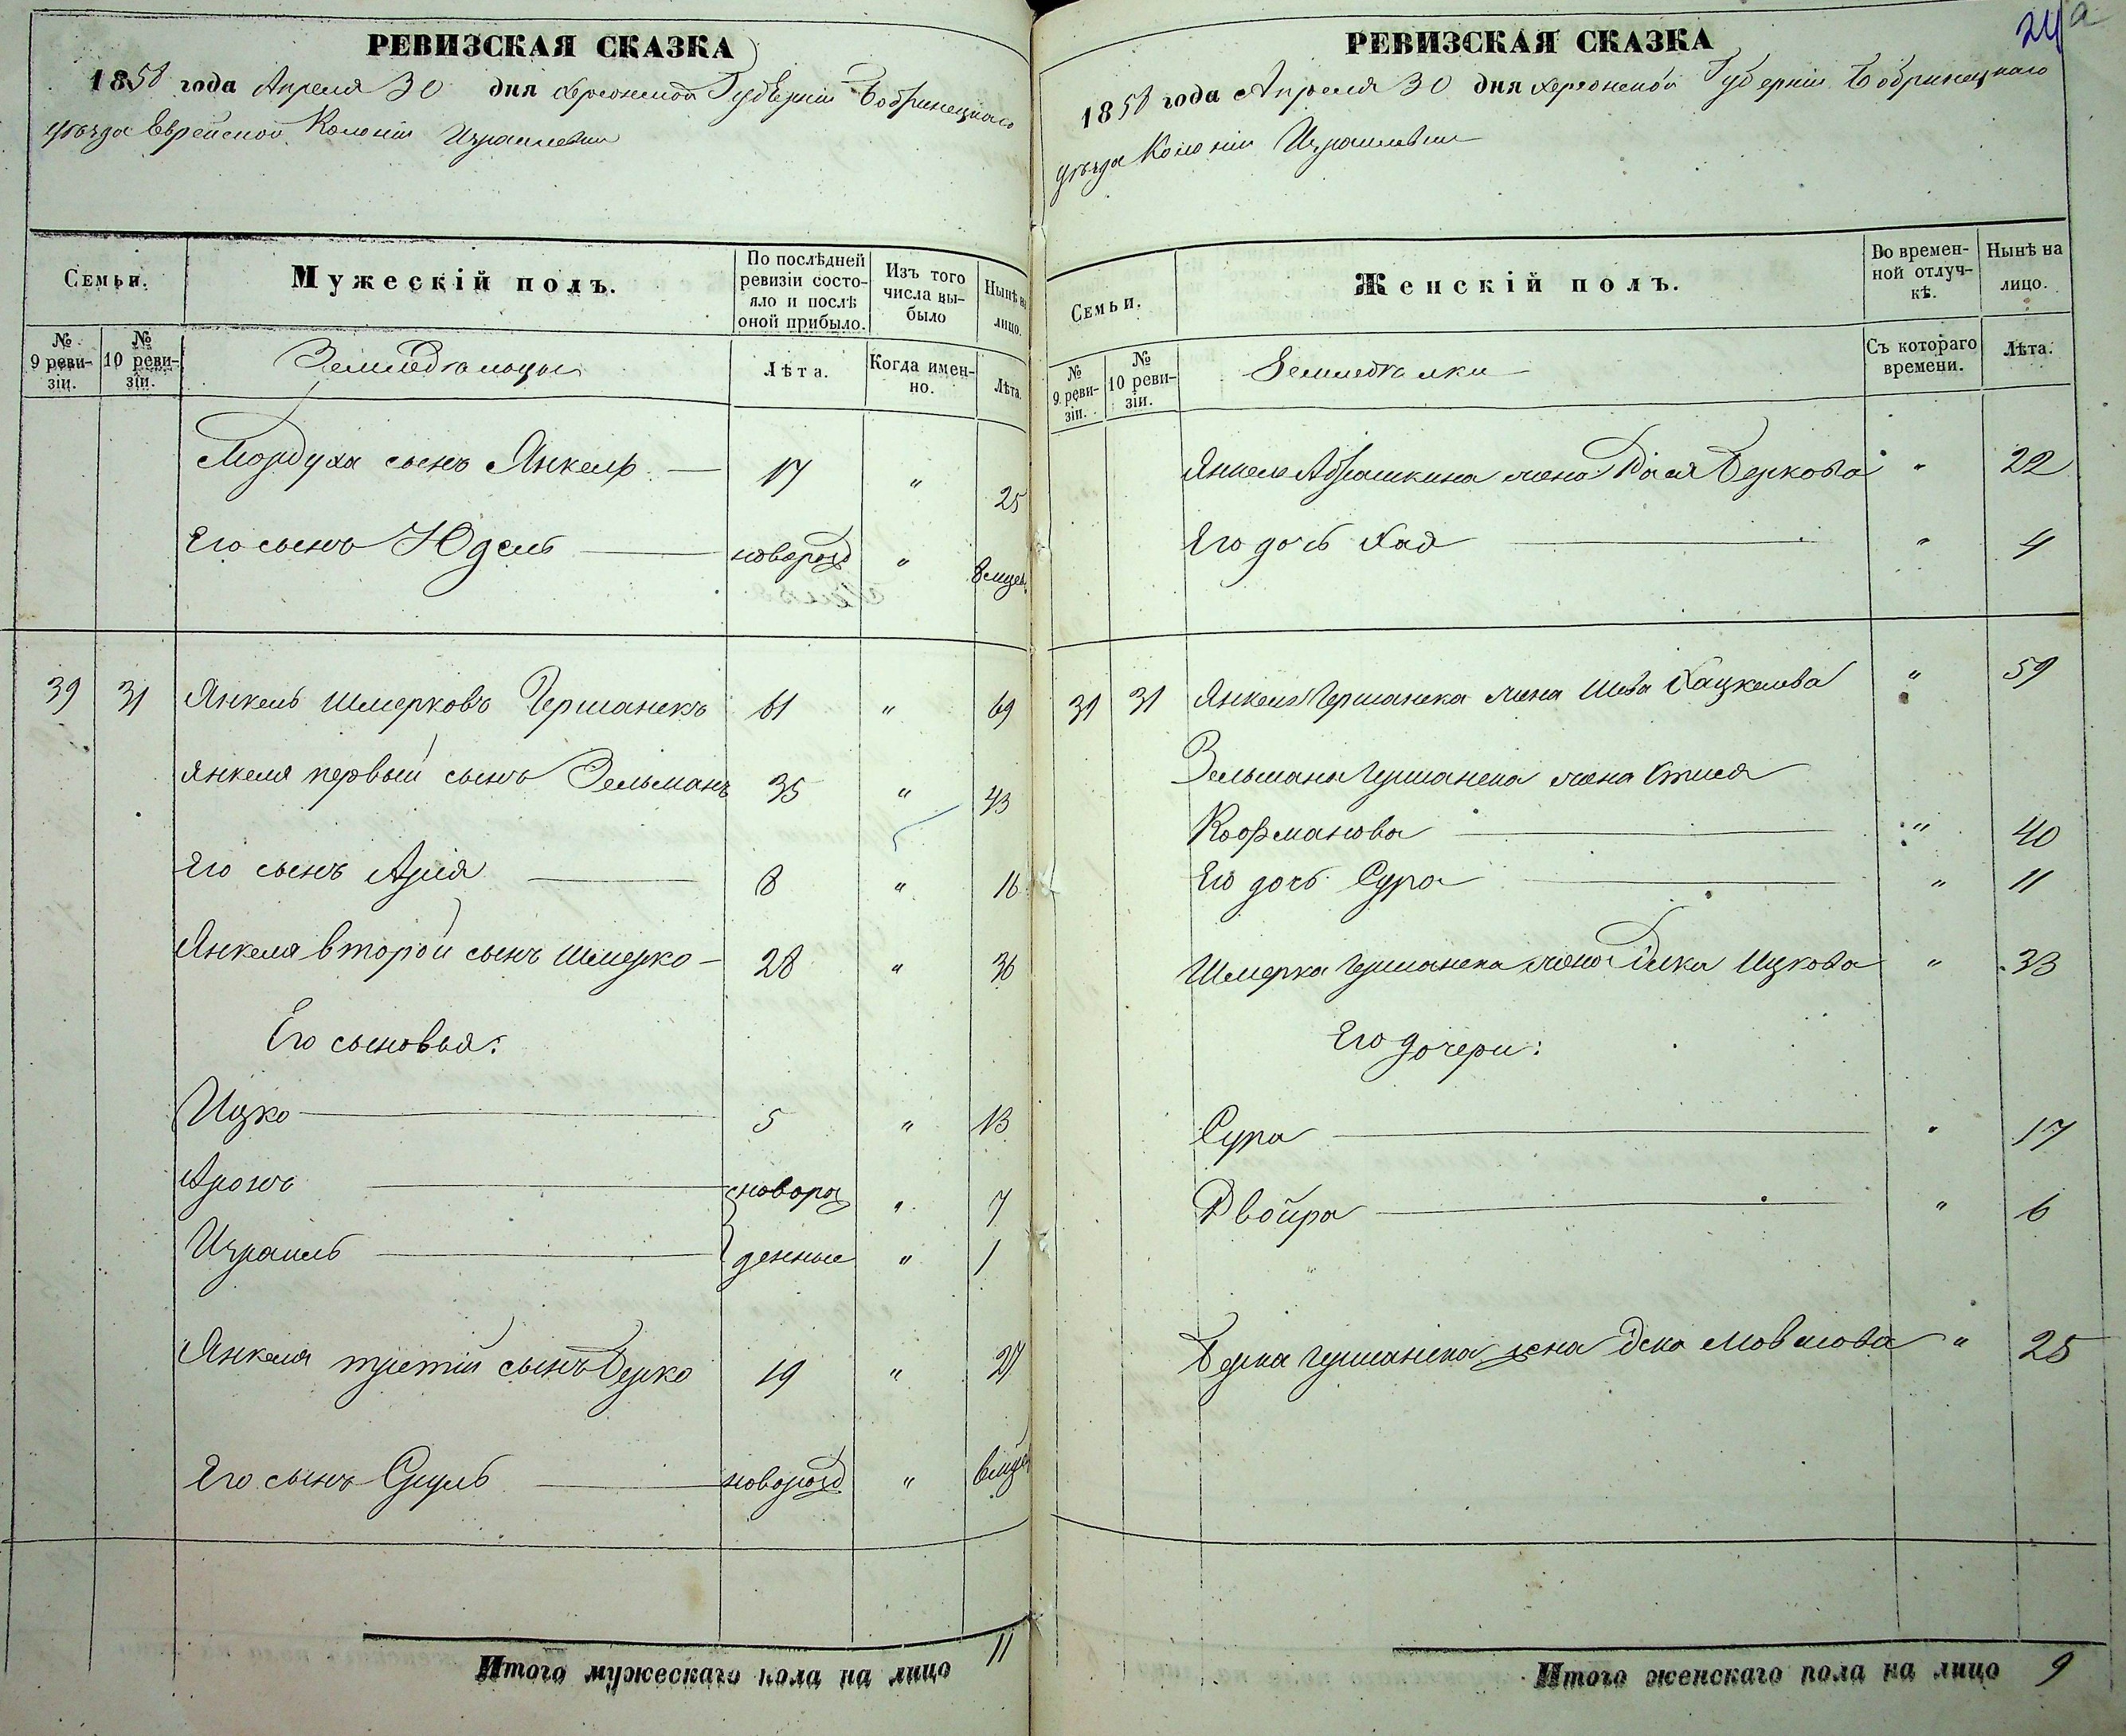 РЕВИЗСКАЯ СКАЗКА
1858 года Апреля 30 дня Херсонской Губерніи Бобринецкаго
уѣзда Еврейской Колоніи Израилевки
Семьи.
Мужескій полъ.
По послѣдней ревизіи состояло и послѣ оной прибыло.
Изъ того числа выбыло
Нынѣ на лицо.
№ 9 ревизіи.
№ 10 ревизіи.
Земледѣльцы
Лѣта.
Когда именно.
Лѣта.
Мордуха сынъ Янкель — 17 " 25
Его сынъ Юдель — новорожд " 8 мцев
39 31 Янкель Шмерковъ Гершанекъ 61 " 69
Янкеля первый сынъ Зельманъ 35 " 43
Его сынъ Арія — 8 " 16
Янкеля второй сынъ Шмерко — 28 " 36
Его сыновья:
Ицко — 5 " 13
Аронъ — новорож " 7
Израиль — денные " 1
Янкеля третій сынъ Берко 19 " 27
Его сынъ Сруль — новорожд " 6 мцев
Итого мужескаго пола на лицо 11
24 а
РЕВИЗСКАЯ СКАЗКА
1858 года Апреля 30 дня Херсонской Губерніи Бобринецкаго
уѣзда Колоніи Израилевки
Семьи.
Женскій полъ.
Во временной отлучкѣ.
Нынѣ на лицо.
№ 9 ревизіи.
№ 10 ревизіи.
Земледѣлки
Съ котораго времени.
Лѣта.
Янкеля Абрашкина жена Бася Беркова " 22
Его дочь Хая — " 4
39 31 Янкеля Гершанека жена Шева Хацкелева " 59
Зельмана Гершанека жена
Кофманова — " 40
Его дочь Сура — " 11
Шмерка Гершанека жена Ицкова " 33
Его дочери:
Сура — " 17
Двойра — " 6
Берка Гершанека жена Мовшова " 25
Итого женскаго пола на лицо 9